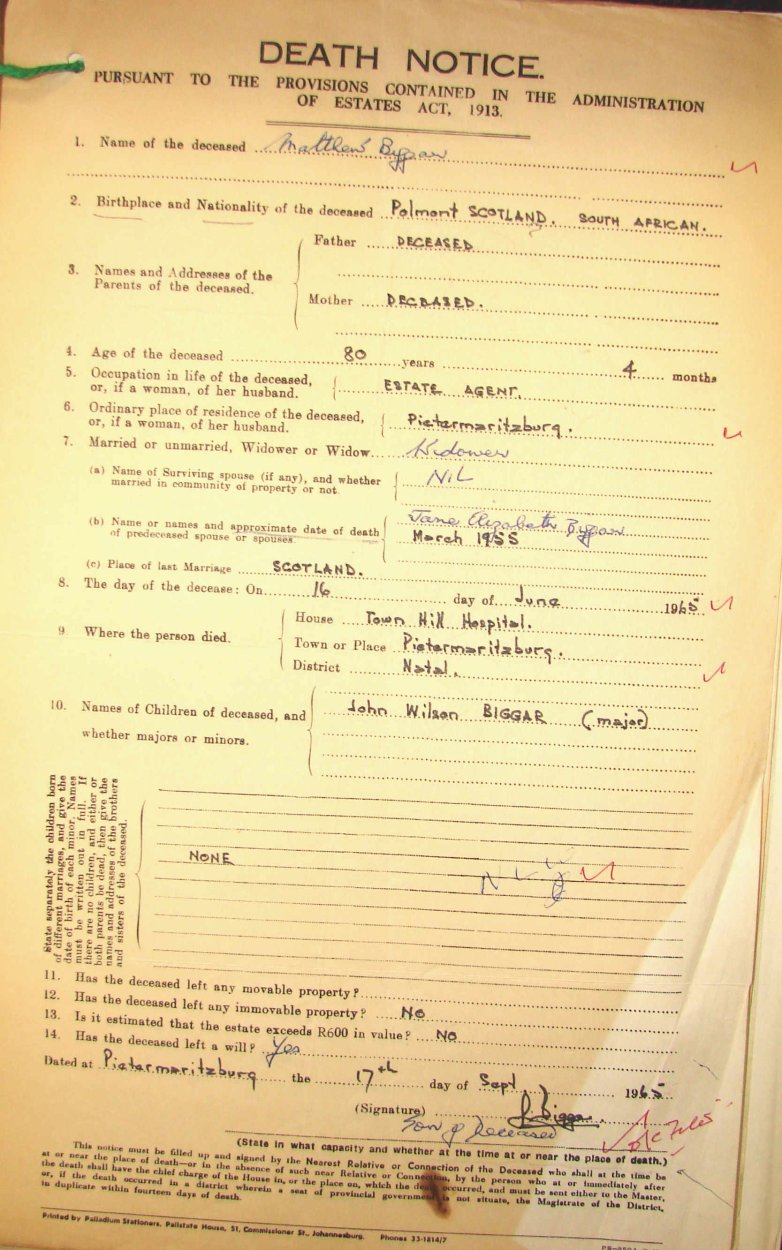 DEATH NOTICE.
PURSUANT TO THE PROVISIONS CONTAINED IN THE ADMINISTRATION
OF ESTATES ACT, 1913.
1. Name of the deceased Matthew Biggar
2. Birthplace and Nationality of the deceased Polmont SCOTLAND. SOUTH AFRICAN.
3. Names and Addresses of the Parents of the deceased.
Father DECEASED
Mother DECEASED.
4. Age of the deceased 80 years 4 months
5. Occupation in life of the deceased,
or, if a woman, of her husband. ESTATE AGENT.
6. Ordinary place of residence of the deceased,
or, if a woman, of her husband. Pietermaritzburg.
7. Married or unmarried, Widower or Widow Widower
(a) Name of Surviving spouse (if any), and whether
married in community of property or not. NiL
(b) Name or names and approximate date of death
of predeceased spouse or spouses.
Jane Elizabeth Biggar
March 1955
(c) Place of last Marriage SCOTLAND.
8. The day of the decease: On 16 day of June 1965
9 Where the person died.
House Town Hill Hospital.
Town or Place Pietermaritzburg.
District Natal.
10. Names of Children of deceased, and
whether majors or minors.
John Wilson BIGGAR (major)
State separately the children born
of different marriages, and give the
date of birth of each minor. Names
must be written out in full. If
there are no children, and either or
both parents be dead, then give the
names and addresses of the brothers
and sisters of the deceased.
NONE
11. Has the deceased left any movable property?
12. Has the deceased left any immovable property? No
13. Is it estimated that the estate exceeds R600 in value? No
14. Has the deceased left a will? Yes
Dated at Pietermaritzburg the 17th day of Sept 1965
(Signature) J. Biggar.
Son of Deceased
(State in what capacity and whether at the time at or near the place of death.)
This notice must be filled up and signed by the Nearest Relative or Connection of the Deceased who shall at the time be
at or near the place of death—or in the absence of such near Relative or Connection, by the person who at or immediately after
the death shall have the chief charge of the House in, or the place on, which the death occurred, and must be sent either to the Master,
or, if the death occurred in a district wherein a seat of provincial government is not situate, the Magistrate of the District,
in duplicate within fourteen days of death.
Printed by Palladium Stationers, Pallstate House, 51, Commissioner St., Johannesburg. Phones 33-1814/7